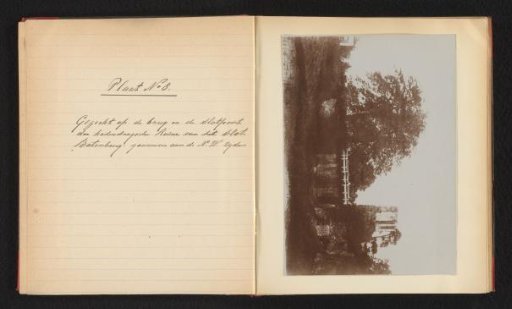 Plaat No 8.
Gezicht op de brug en de Slotpoort
der hedendaagsche Ruïne van het Slot
Batenburg genomen van de N. W. zijde